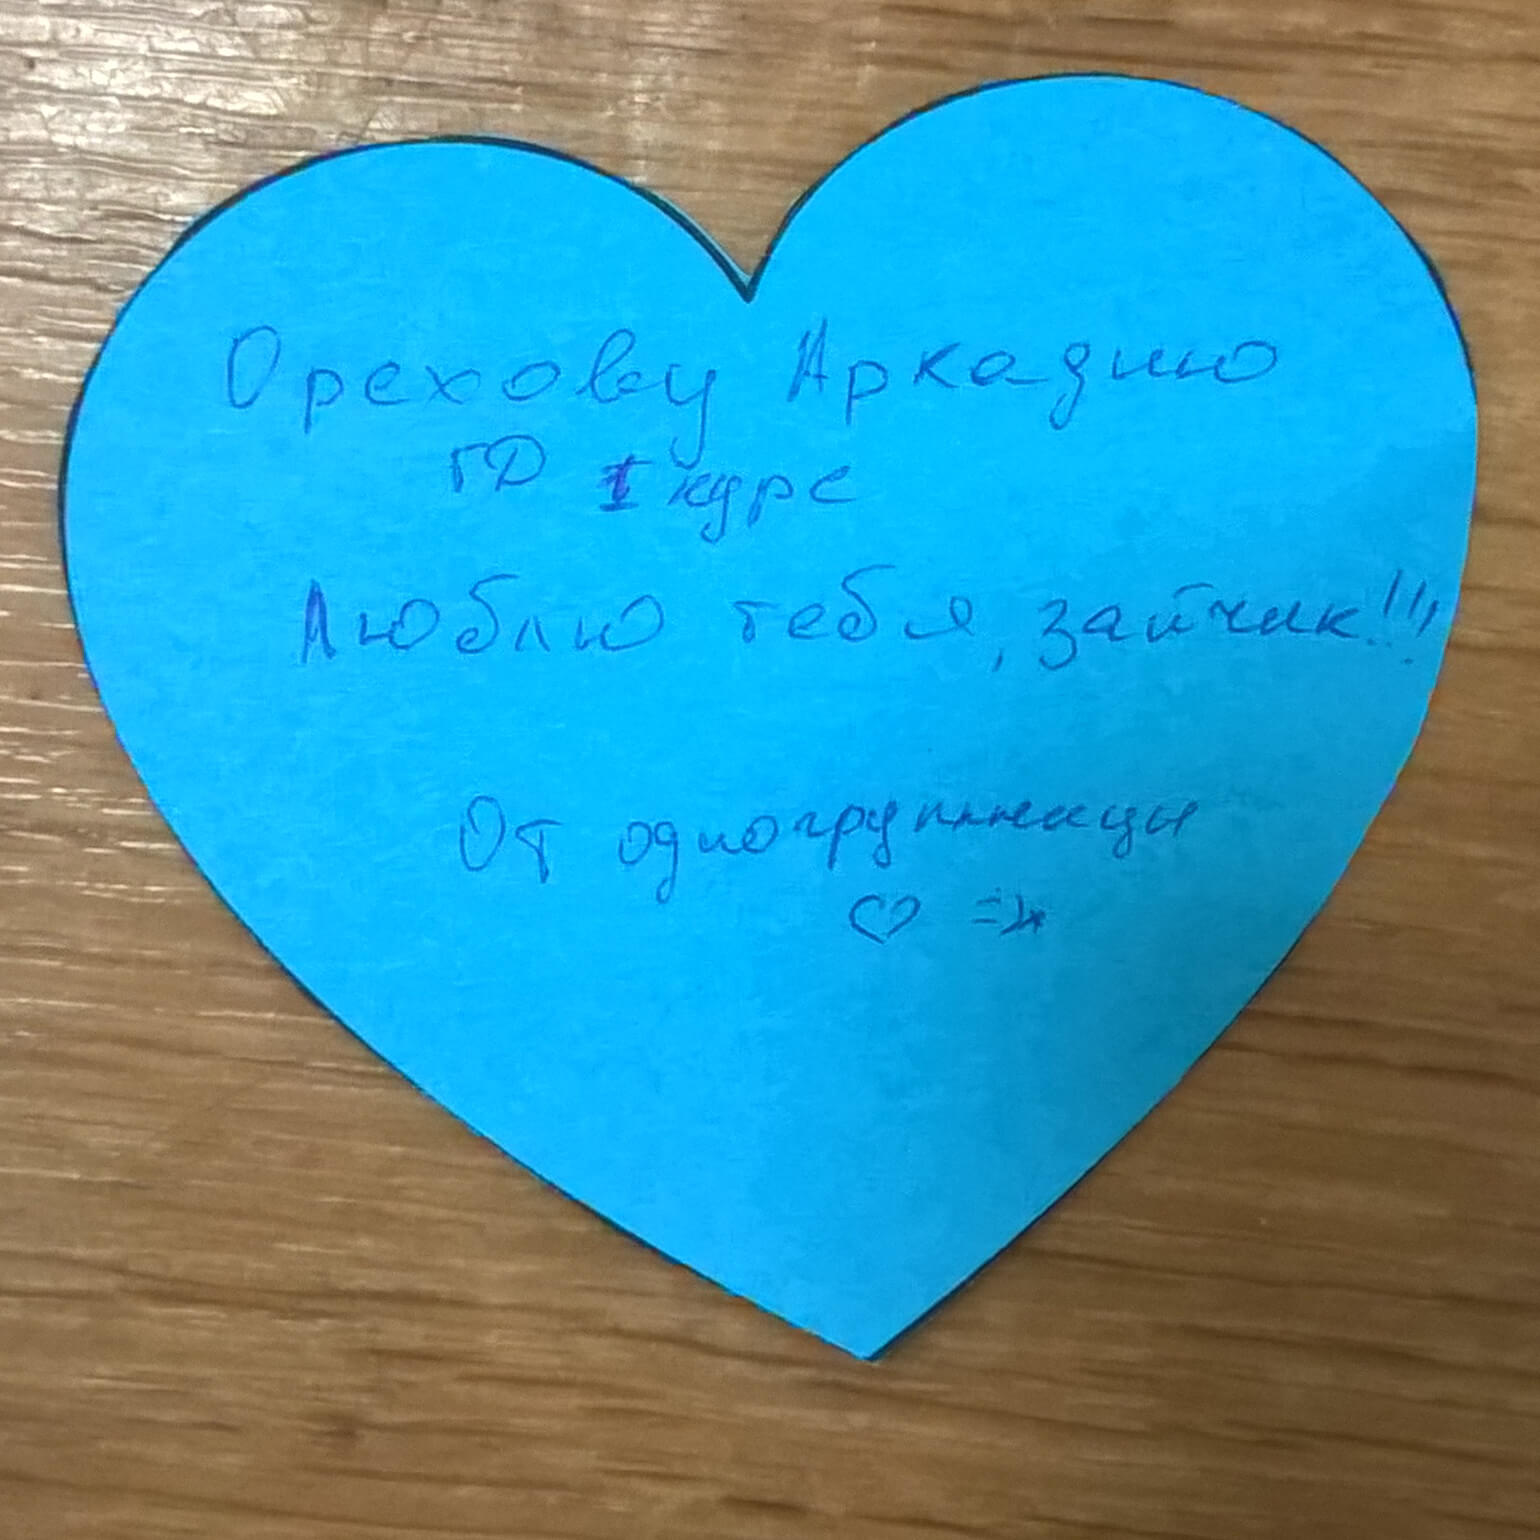 Орехову Аркадию
ГД 1 курс
Люблю тебя, зайчик!!!
От одногруппницы
♡ =)*